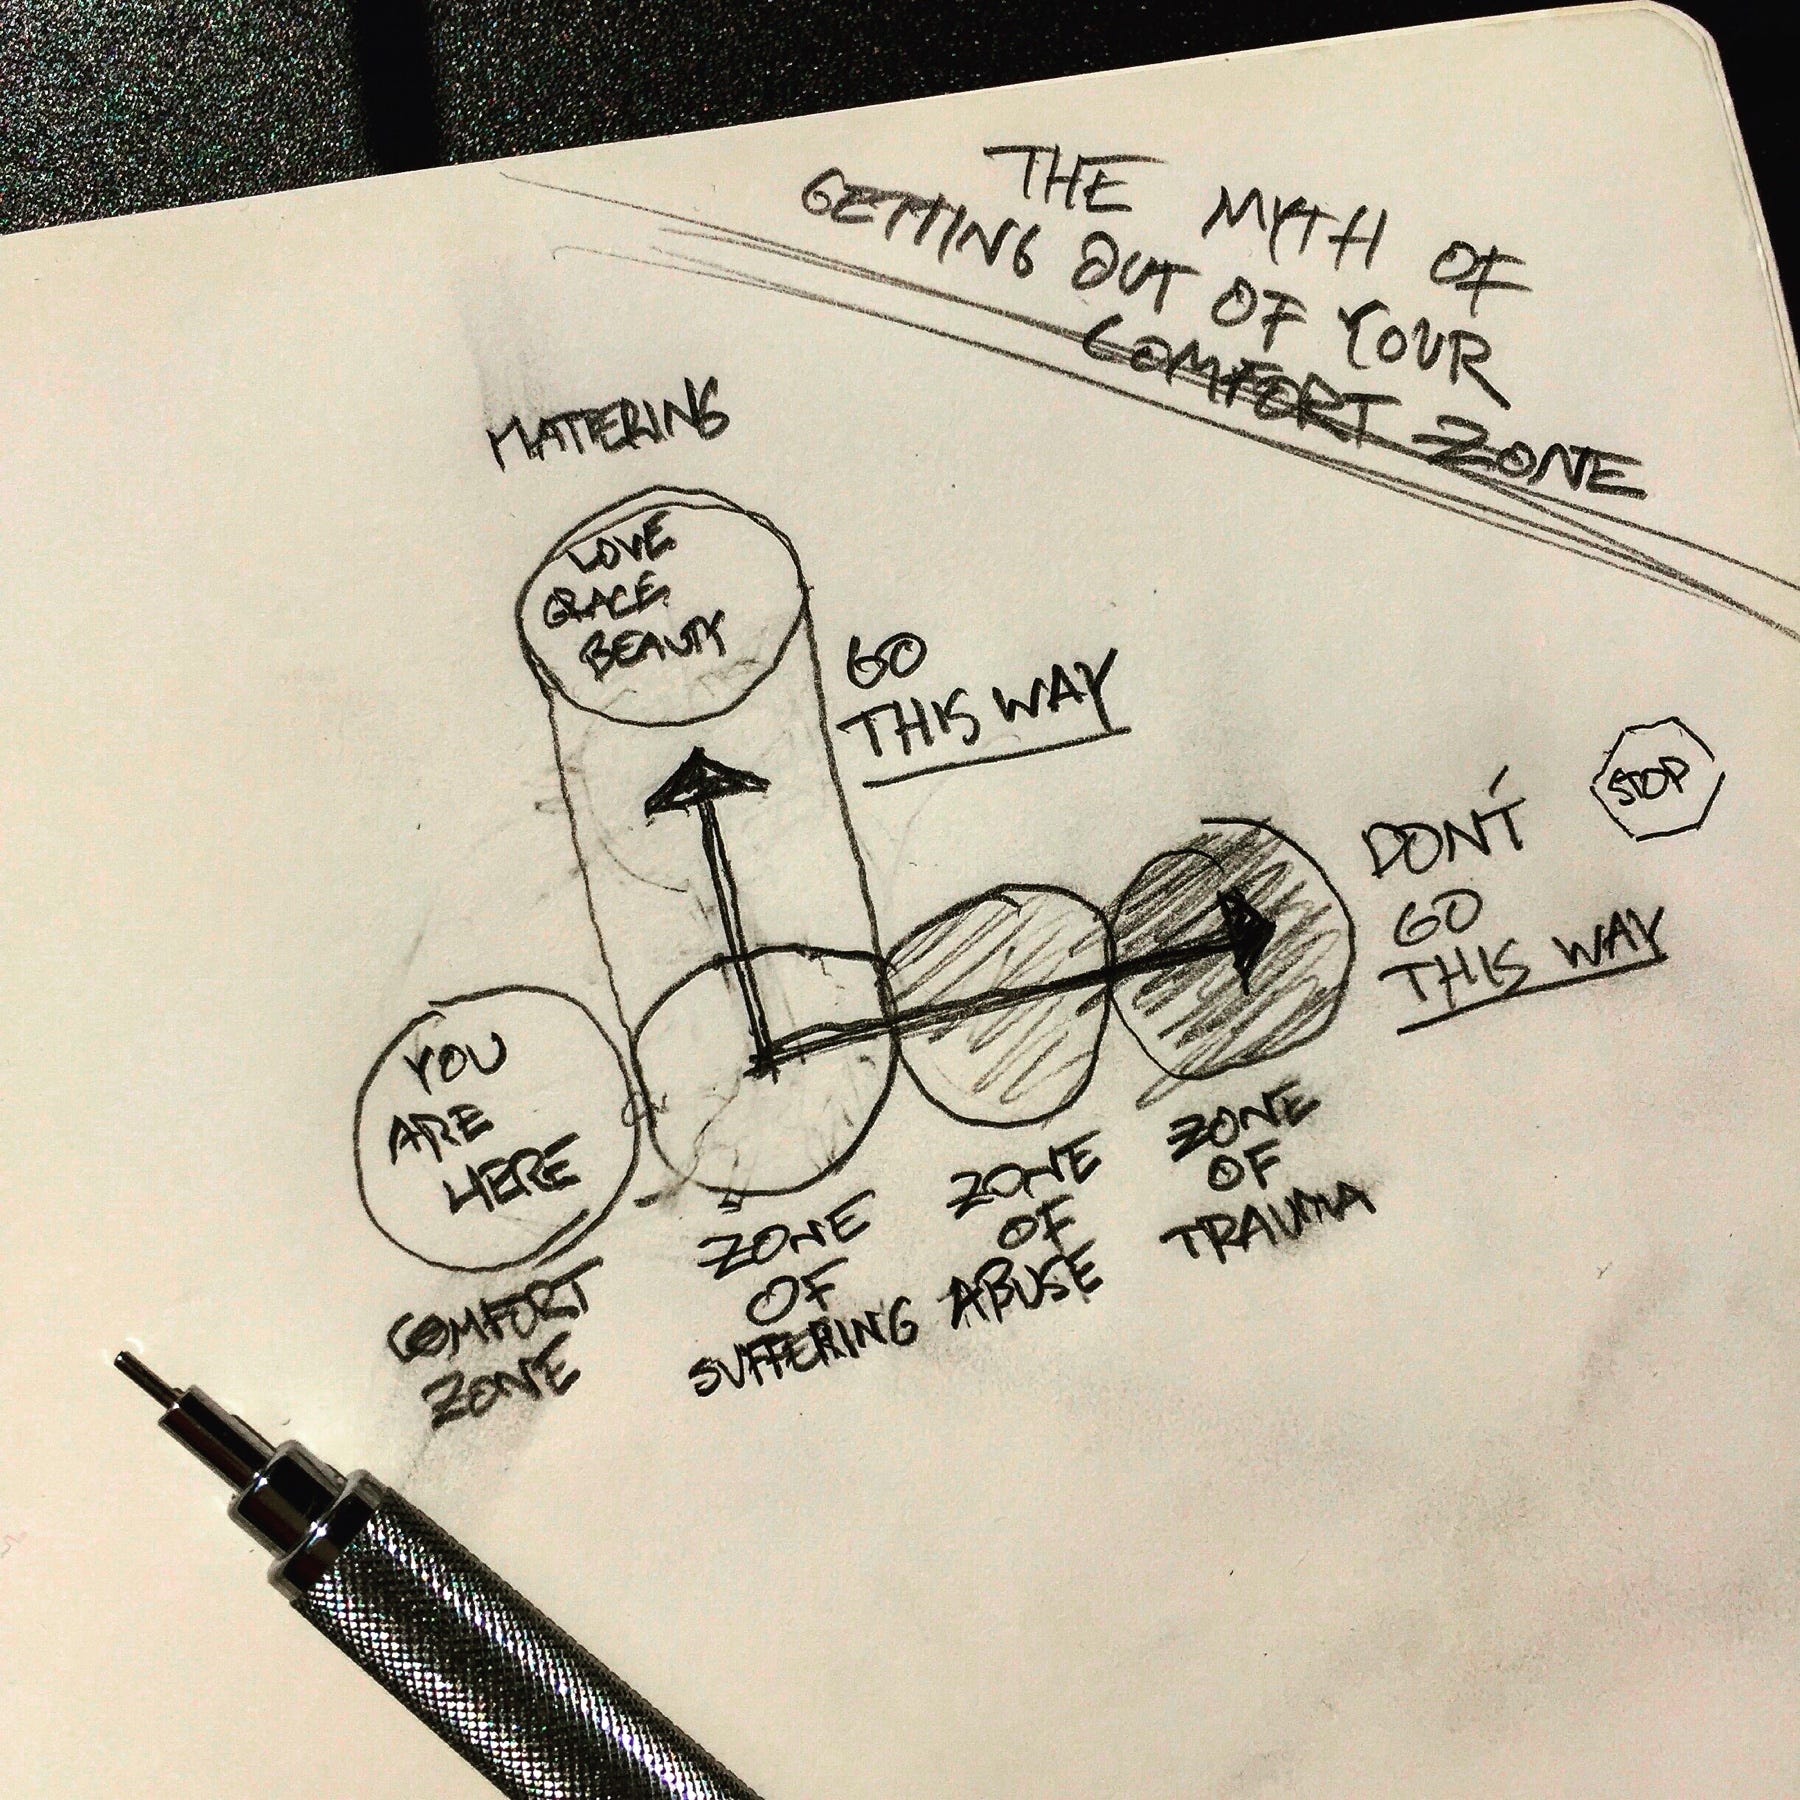 THE MYTH OF
GETTING OUT OF YOUR
COMFORT ZONE
MATTERING
LOVE
GRACE
BEAUTY
GO
THIS WAY
STOP
DON'T
GO
THIS WAY
YOU
ARE
HERE
COMFORT
ZONE
ZONE
OF
SUFFERING
ZONE
OF
ABUSE
ZONE
OF
TRAUMA